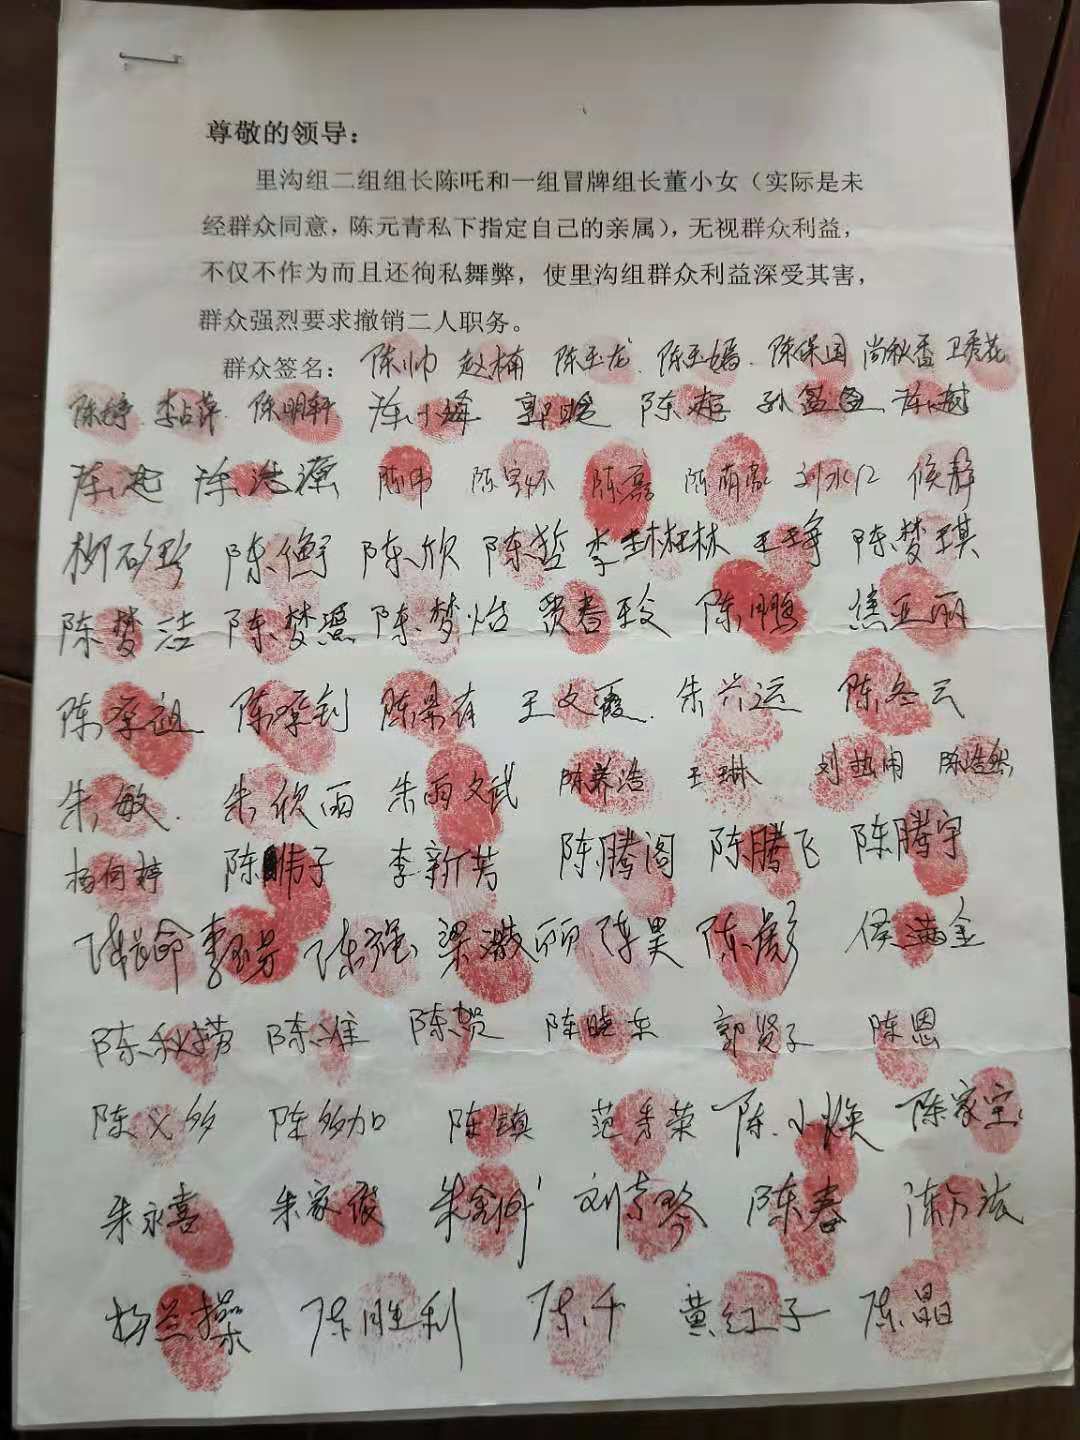 尊敬的领导：
里沟组二组组长陈吒和一组冒牌组长董小女（实际是未
经群众同意，陈元青私下指定自己的亲属），无视群众利益，
不仅不作为而且还徇私舞弊，使里沟组群众利益深受其害，
群众强烈要求撤销二人职务。
群众签名： 陈帅 赵楠 陈玉龙 陈玉嫣 陈保国 尚秋香 卫秀花
陈婷 李占萍 陈明轩 陈小峰 郭晓 陈超 孙盈盈 陈树
陈浩源 陈伟 陈宝怀 陈磊 陈萌 刘水仁 候静
柳石珍 陈衡 陈欣 陈哲 李林 王峥 陈梦琪
陈梦洁 陈梦瑶 陈梦怡 贾春玉 陈鹏 焦亚丽
陈军祖 陈军钊 陈景有 王文霞 朱兴运 陈冬云
朱敏 朱欣雨 朱雨文武 陈养浩 王琳 刘热闹 陈浩然
杨何婷 陈伟子 李新芳 陈腾阁 陈腾飞 陈腾宇
陈长命 李玉芳 陈强 梁淑丽 陈昊 陈彪 侯满金
陈秋菊 陈难 陈贺 陈晓东 郭贤子 陈恩
陈义多 陈多加 陈镇 范秀荣 陈小焕 陈家宝
朱永喜 朱家俊 朱金 刘京琴 陈春 陈方法
杨兰操 陈胜利 陈千 黄红子 陈晶